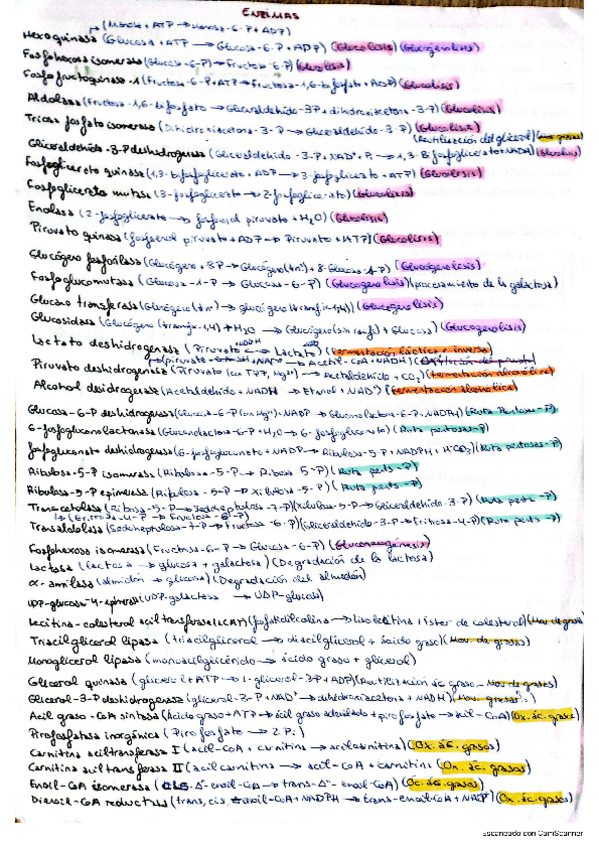 ENZIMAS
(Manosa + ATP → Manosa-6-P + ADP)
Hexoquinasa (Glucosa + ATP → Glucosa-6-P + ADP) (Glucolisis) (Glucogenolisis)
Fosfohexosa isomerasa (Glucosa-6-P → Fructosa-6-P) (Glucolisis)
Fosfofructoquinasa-1 (Fructosa-6-P + ATP → Fructosa-1,6-bifosfato + ADP) (Glucolisis)
Aldolasa (Fructosa-1,6-bifosfato → Gliceraldehido-3P + dihidroxiacetona-3-P) (Glucolisis)
Triosa fosfato isomerasa (Dihidroxiacetona-3-P → Gliceraldehido-3-P) (Glucolisis)
(Reutilización del glicerol) (Mov. grasas)
Gliceraldehido-3-P deshidrogenasa (Gliceraldehido-3-P + NAD⁺ + Pi → 1,3-Bifosfoglicerato + NADH) (Glucolisis)
Fosfoglicerato quinasa (1,3-bifosfoglicerato + ADP → 3-fosfoglicerato + ATP) (Glucolisis)
Fosfoglicerato mutasa (3-fosfoglicerato → 2-fosfoglicerato) (Glucolisis)
Enolasa (2-fosfoglicerato → fosfoenol piruvato + H₂O) (Glucolisis)
Piruvato quinasa (fosfoenol piruvato + ADP → Piruvato + ATP) (Glucolisis)
Glucógeno fosforilasa (Glucógeno + 8P → Glucógeno + 8 Glucosa-1-P) (Glucogenolisis)
Fosfoglucomutasa (Glucosa-1-P → Glucosa-6-P) (Glucogenolisis) (procesamiento de la galactosa)
Glucano transferasa (Glucógeno → glucógeno) (Glucogenolisis)
Glucosidasa (Glucógeno + H₂O → Glucógeno + Glucosa) (Glucogenolisis)
Lactato deshidrogenasa (Piruvato → Lactato) (Fermentación láctica e inversa)
Piruvato deshidrogenasa (Piruvato (con TPP, Mg²⁺) → Acetaldehido + CO₂) (Fermentación alcohólica)
Alcohol desidrogenasa (Acetaldehido + NADH → Etanol + NAD⁺) (Fermentación alcohólica)
Glucosa-6-P deshidrogenasa (Glucosa-6-P (con Mg²⁺) + NADP → Gluconolactona-6-P + NADPH) (Ruta Pentosas-P)
6-fosfogluconolactonasa (Gluconolactona-6-P + H₂O → 6-fosfogluconato) (Ruta pentosas-P)
fosfogluconato deshidrogenasa (6-fosfogluconato + NADP → Ribulosa-5-P + NADPH + CO₂) (Ruta pentosas-P)
Ribulosa-5-P isomerasa (Ribulosa-5-P → Ribosa 5-P) (Ruta pents-P)
Ribulosa-5-P epimerasa (Ribulosa-5-P → Xilulosa-5-P) (Ruta pents-P)
Transcetolasa (Ribosa-5-P → Sedoheptulosa-7-P) (Xilulosa-5-P → Gliceraldehido-3-P) (Ruta pents-P)
↳ (Eritrosa-4-P → Fructosa-6-P)
Transaldolasa (Sedoheptulosa-7-P → Fructosa-6-P) (Gliceraldehido-3-P → Eritrosa-4-P) (Ruta pents-P)
Fosfohexosa isomerasa (Fructosa-6-P → Glucosa-6-P) (Gluconeogénesis)
Lactasa (lactosa → glucosa + galactosa) (Degradación de la lactosa)
α-amilasa (almidón → glucosa) (Degradación del almidón)
UDP-glucosa-4-epimerasa (UDP-galactosa → UDP-glucosa)
Lecitina-colesterol acil transferasa (LCAT) (fosfatidilcolina → lisolecitina + éster de colesterol) (Mov. de grasas)
Triacilglicerol lipasa (triacilglicerol → diacilglicerol + ácido graso) (Mov. de grasas)
Monoglicerol lipasa (monoacilglicérido → ácido graso + glicerol)
Glicerol quinasa (glicerol + ATP → L-glicerol-3-P + ADP) (Reutilización ác graso - Mov. de grasas)
Glicerol-3-P deshidrogenasa (glicerol-3-P + NAD⁺ → dihidroxiacetona + NADH) (Mov. grasas)
Acil graso-CoA sintasa (Ácido graso + ATP → ácil graso adenilado + pirofosfato → acil-CoA) (Ox. ác. graso)
Pirofosfatasa inorgánica (Pirofosfato → 2 Pi)
Carnitina aciltransferasa I (acil-CoA + carnitina → acilcarnitina) (Ox. ác. grasos)
Carnitina aciltransferasa II (acilcarnitina → acil-CoA + carnitina) (Ox. ác. grasos)
Enoil-CoA isomerasa (enoil-CoA → enoil-CoA) (Ox. ác. grasos)
Dienoil-CoA reductasa (trans, cis enoil-CoA + NADPH → trans-enoil-CoA + NADP) (Ox. ác. grasos)
Escaneado con CamScanner